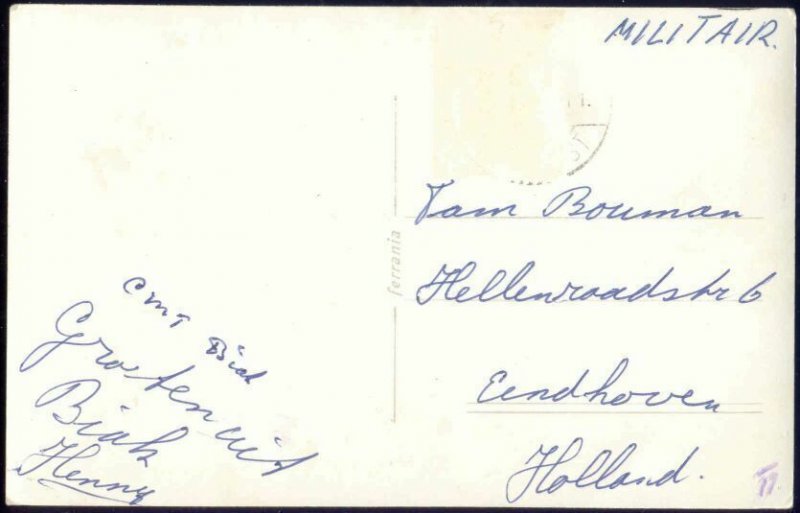 MILITAIR.
Fam Bouman
Hellenraadstr 6
Eendhoven
Holland.
ferrania
CMT Biak
Groeten uit
Biak
Henny